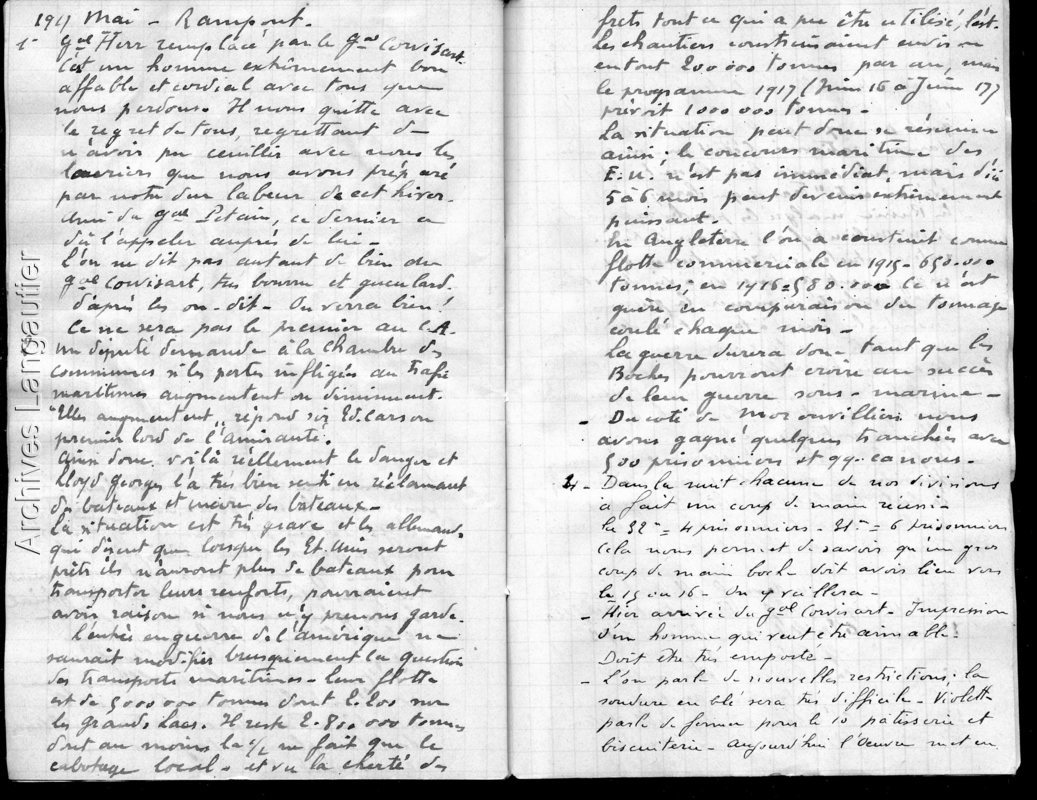 1917 Mai - Rampont.
1- Gal Herr remplacé par le Gal Corvisart.
C'est un homme extrêmement bon
affable et cordial avec tous que
nous perdons. Il nous quitte avec
le regret de tous, regrettant de
n'avoir pu ceuillir avec nous les
lauriers que nous avons préparé
par notre dur labeur de cet hiver.
Ami du Gal Petain, ce dernier a
dû l'appeler auprès de lui -
l'on ne dit pas autant de bien du
Gal Corvisart, très bourru et gueulard
d'après les on-dit - On verra bien !
Ce ne sera pas le premier au C.A.
Un député demande à la chambre des
communes si les pertes infligées au trafic
maritimes augmentent ou diminuent.
"Elles augmentent" répond sir Ed. Carson
premier lord de l'Amirauté.
Ainsi donc voilà réellement le danger et
Lloyd Georges l'a très bien senti en réclamant
des bateaux et encore des bateaux -
La situation est très grave et les allemands
qui disent que lorsque les Et. Unis seront
prêts ils n'auront plus de bateaux pour
transporter leurs renforts, pourraient
avoir raison si nous n'y prenons garde.
L'entrée en guerre de l'amérique ne
saurait modifier brusquement la question
des transports maritimes - leur flotte
est de 5000000 tonnes dont 2.200 sur
les grands Lacs. Il reste 2.800.000 tonnes
dont au moins la 1/2 ne fait que le
cabotage local - et vu la cherté des
frets tout ce qui a pu être utilisé, l'est.
Les chantiers construisaient environ
en tout 200 000 tonnes par an, mais
le programme 1917 (Juin 16 à Juin 17)
prévoit 1000 000 tonnes -
La situation peut donc se résumer
ainsi ; le concours maritime des
E.U. n'est pas immédiat, mais d'ici
5 à 6 mois peut devenir extrêmement
puissant.
En Angleterre l'on a construit comme
flotte commerciale en 1915 - 650.000
tonnes ; en 1916 = 580.000 ce n'est
guère en comparaison du tonnage
coulé chaque mois -
La guerre durera donc tant que les
Boches pourront croire au succès
de leur guerre sous-marine -
- Du coté de Moronvilliers nous
avons gagné quelques tranchées avec
500 prisonniers et 99 canons -
2 - Dans la nuit chacune de nos divisions
a fait un coup de main réussi -
la 32e = 4 prisonniers - 31e = 6 prisonniers
Cela nous permet de savoir qu'un gros
coup de main boche doit avoir lieu vers
le 15 ou 16 - On y veillera -
- Hier arrivée du Gal Corvisart - Impression
d'un homme qui veut etre aimable -
Doit être très emporté -
- L'on parle de nouvelles restrictions ; la
soudure en blé sera très difficile - Violette
parle de fermer pour le 10 patisserie et
biscuiterie - Aujourd'hui l'Oeuvre met en
Archives Langautier